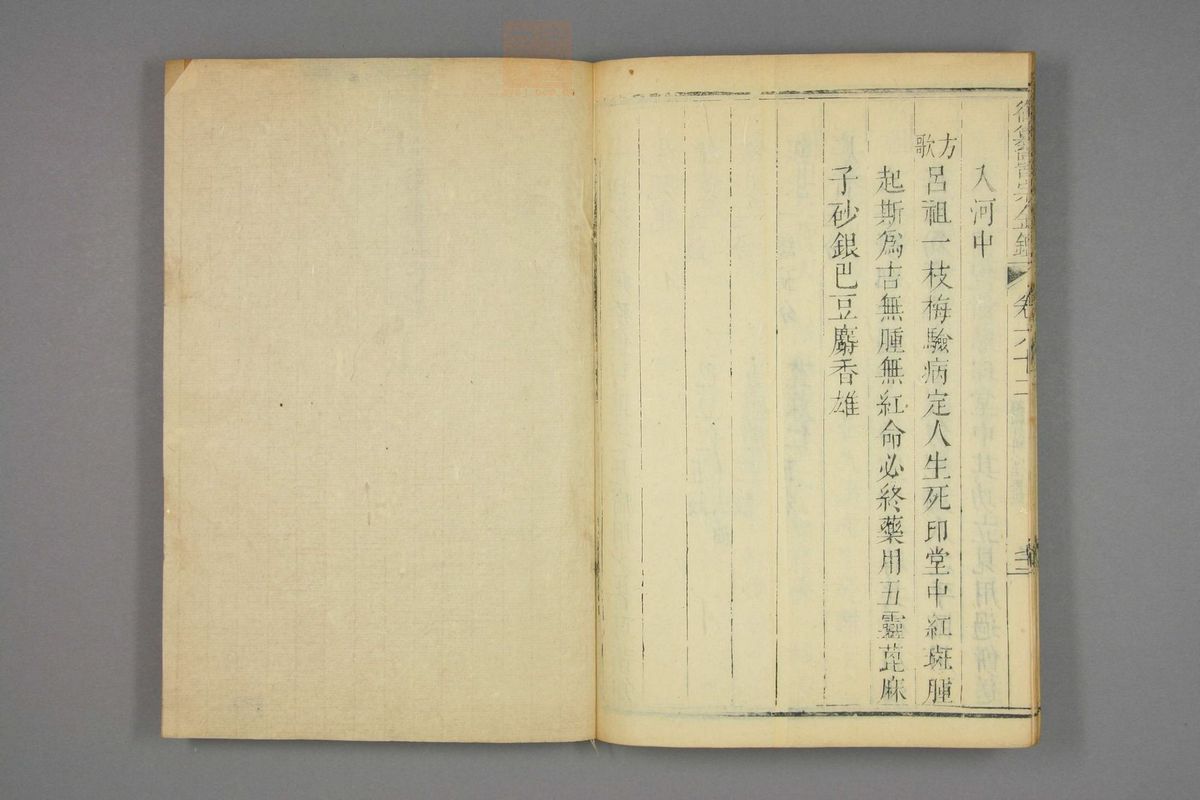 入河中
方歌
呂祖一枝梅驗病定人生死印堂中紅斑腫
起斯為吉無腫無紅命必終藥用五靈蓖麻
子砂銀巴豆麝香雄
卷六十二